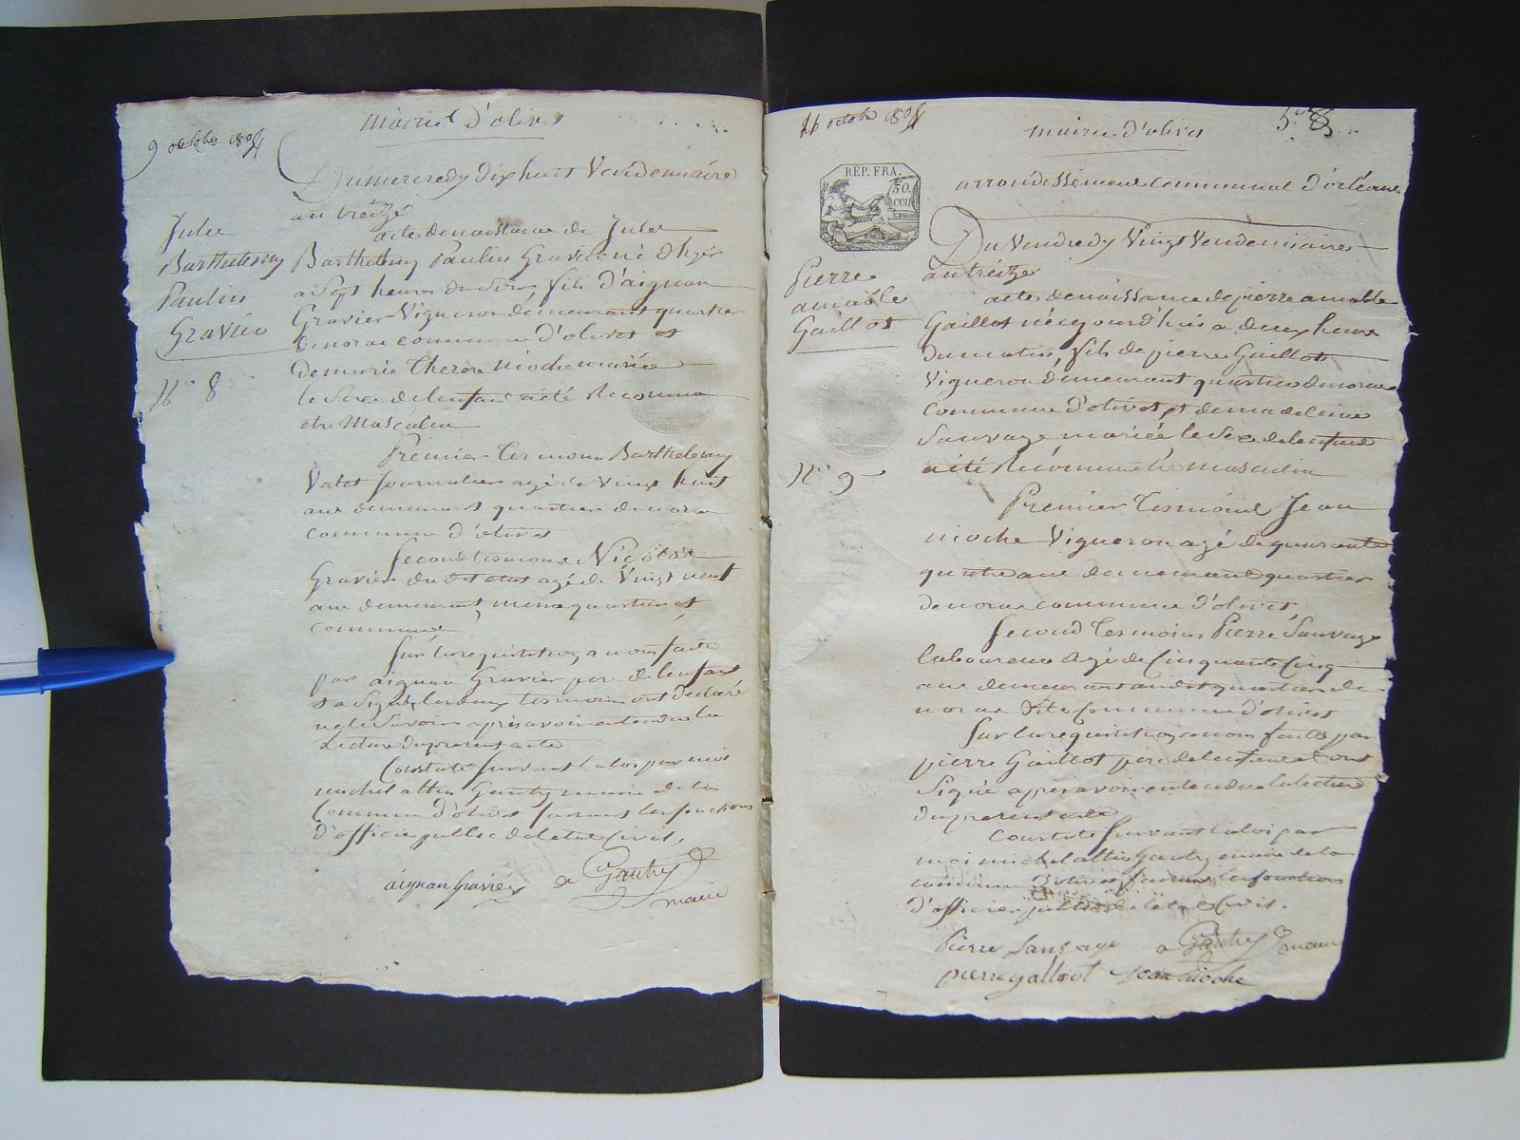 mairie d'olivet
9 octobre 1804
Du mercredy dix huit Vendémiaire
an treize
acte de naissance de Jules
Barthelemy Paulin Gravier né d'hyer
a Sept heures du Soir, fils D'aignan
Gravier Vigneron demeurant quartier
de noras commune d'olivet et
de marie Therese nioche mariée
le Sexe de lenfant a été Reconnu
etre Masculin
Jules
Barthelemy
Paulin
Gravier
No 8
Premier Tesmoin Barthelemy
Valet Journalier agé de Vingt huit
ans demeurant quartier de noras
commune d'olivet
Second tesmoin
Gravier agé de Vingt neuf
ans demeurant meme quartier et
commune
Sur la requisition a nous faite
par aignan Gravier pere de lenfant
et a Signé, les deux tesmoins ont declaré
ne le Savoir apres avoir entendu la
Lecture du present acte
Constaté Suivant la loi par moi
michel Gautry maire de la
Commune d'olivet faisant les fonctions
d'officier public de letat Civil.
aignan Gravier
Gautry
maire
16 octobre 1804
mairie d'olivet
5.
REP. FRA.
50.
arrondissement Communal d'orleans
Du Vendredy Vingt Vendemiaire
an treize
acte de naissance de pierre amable
Gaillot né cejourd'hui a deux heures
du matin, fils de pierre Gaillot
Vigneron demeurant quartier de noras
commune d'olivet et de madeleine
Sauvage mariée le Sexe de lenfant
a été Reconnu Etre masculin
Pierre
amable
Gaillot
No 9
Premier tesmoin Jean
nioche Vigneron agé de quarante
quatre ans demeurant quartier
de noras commune d'olivet,
Second tesmoin Pierre Sauvage
laboureur agé de Cinquante Cinq
ans demeurant audit quartier de
noras dite Commune d'olivet
Sur la requisition a nous faite par
pierre Gaillot pere de lenfant et ont
Signé apres avoir entendu la lecture
du present acte
Constaté Suivant la loi par
moi michel Gautry maire de la
commune d'olivet faisant les fonctions
d'officier public de letat Civil.
Pierre Sauvage
Gautry maire
pierre galliot Jean Nioche